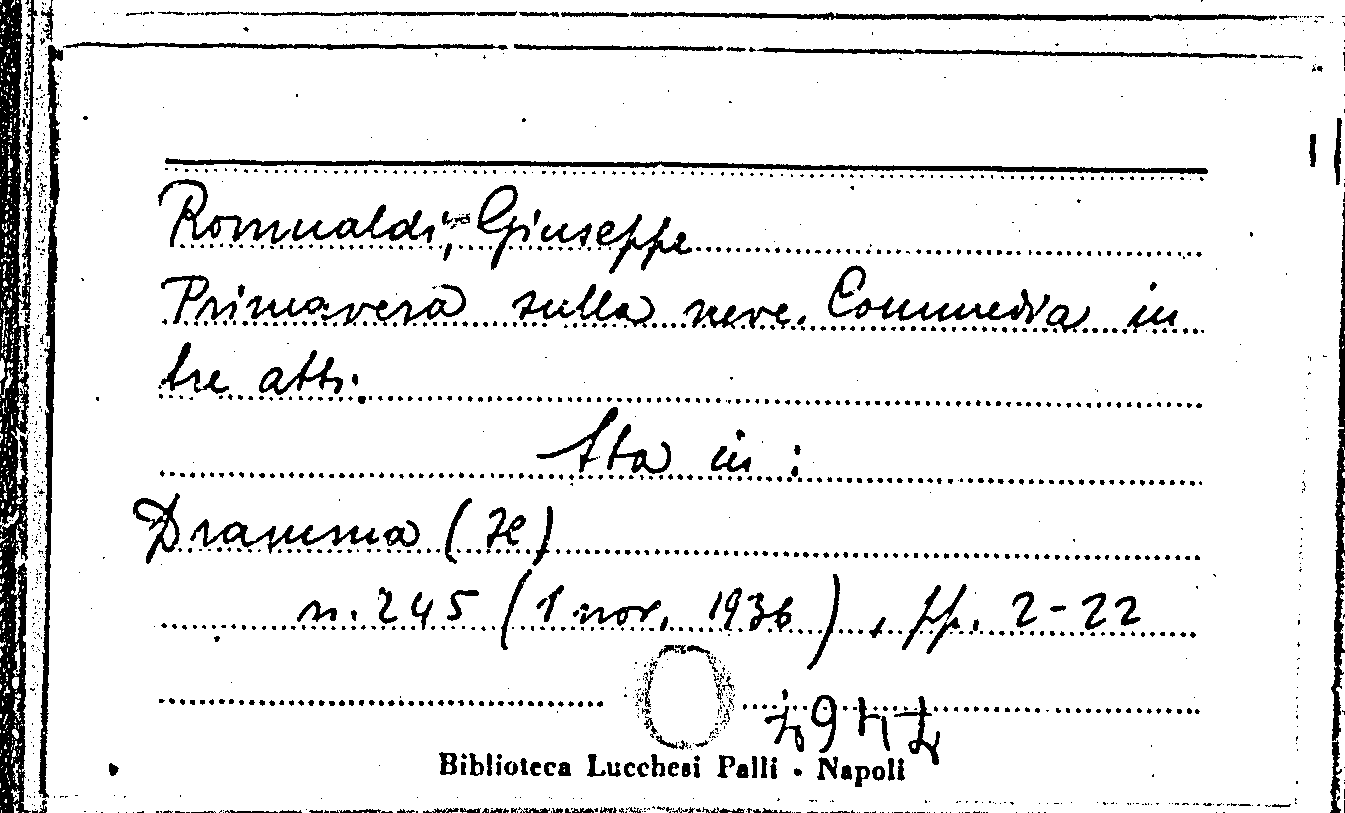 Romualdi, Giuseppe
Primavera sulla neve. Commedia in
tre atti.
Sta in:
Dramma (Il)
n. 245 (1 nov. 1936), pp. 2-22
Biblioteca Lucchesi Palli · Napoli